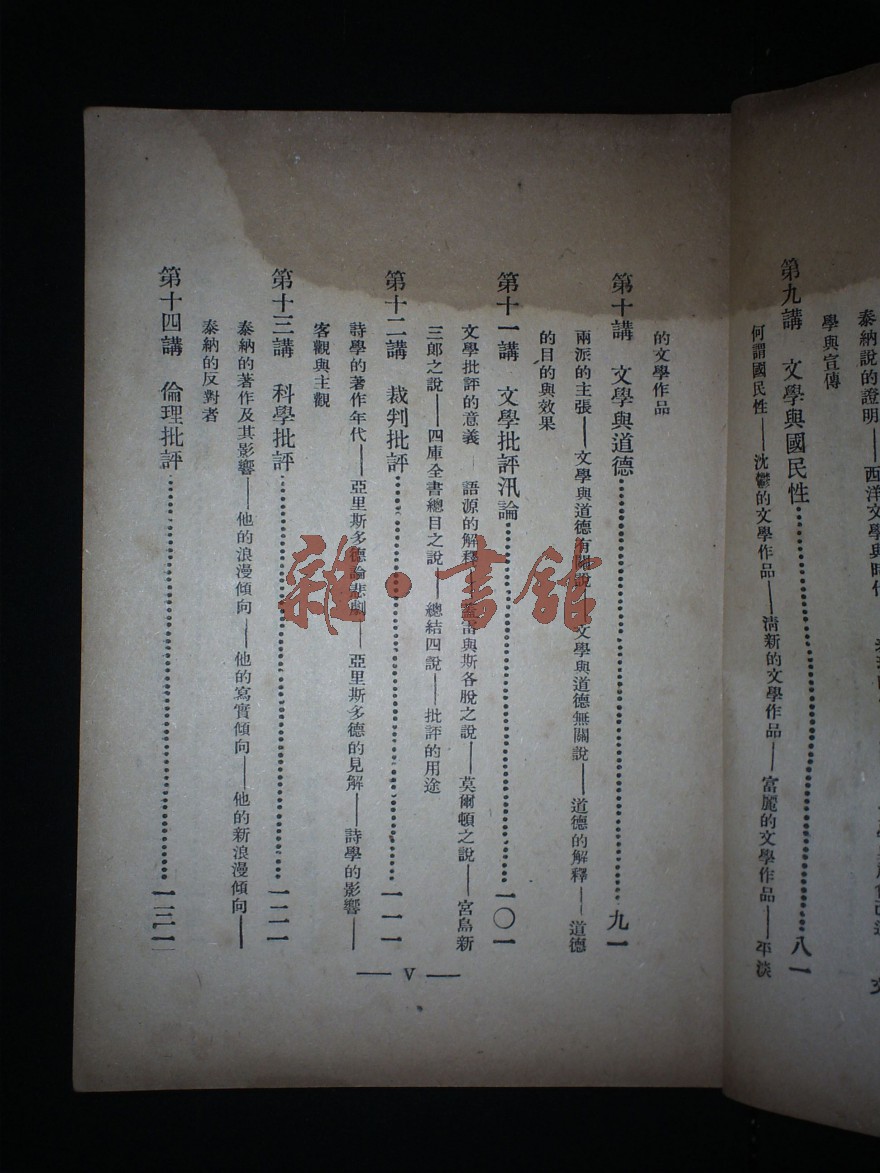 泰納說的證明——西洋文學與時代
學與宣傳
第九講 文學與國民性……八一
何謂國民性——沈鬱的文學作品——清新的文學作品——富麗的文學作品——平淡
的文學作品
第十講 文學與道德……九一
兩派的主張——文學與道德有關說——文學與道德無關說——道德的解釋——道德
的目的與效果
第十一講 文學批評汛論……一〇一
文學批評的意義——語源的解釋——蓋雷與斯各脫之說——莫爾頓之說——宮島新
三郎之說——四庫全書總目之說——總結四說——批評的用途
第十二講 裁判批評……一一一
詩學的著作年代——亞里斯多德論悲劇——亞里斯多德的見解——詩學的影響——
客觀與主觀
第十三講 科學批評……一二一
泰納的著作及其影響——他的浪漫傾向——他的寫實傾向——他的新浪漫傾向——
泰納的反對者
第十四講 倫理批評……一三一
— V —
雜·書館